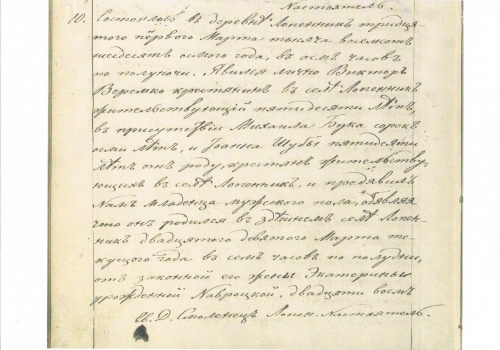 Настоятель.
10. Состоялось в деревнѣ Лопенник тридца
того первого Марта тысяча восемсотъ
шесдесят осмого года, въ осмъ часовъ
по полуночи. Явился лично Викторъ
Веремко крестянинъ в селѣ Лопенник
жительствующій пятидесяти лѣтъ,
въ присутствіи Михаила Бука сорок
осми лѣтъ, и Іоанна Шубы пятидесяти
лѣтъ отъ роду, крестян жительству
ющихъ въ селѣ Лопенникъ, и предявилъ
Намъ младенца мужеского пола, обявляя
что онъ родился въ здѣшнемъ селѣ Лопен
никъ двадцятого девятого Марта те
кущого года въ семъ часовъ по полудни,
отъ законной его жены Екатерины
урожденной Навроцкой, двадцяти восмъ
Св. Д. Смоленецъ Лопен. Настоятель.